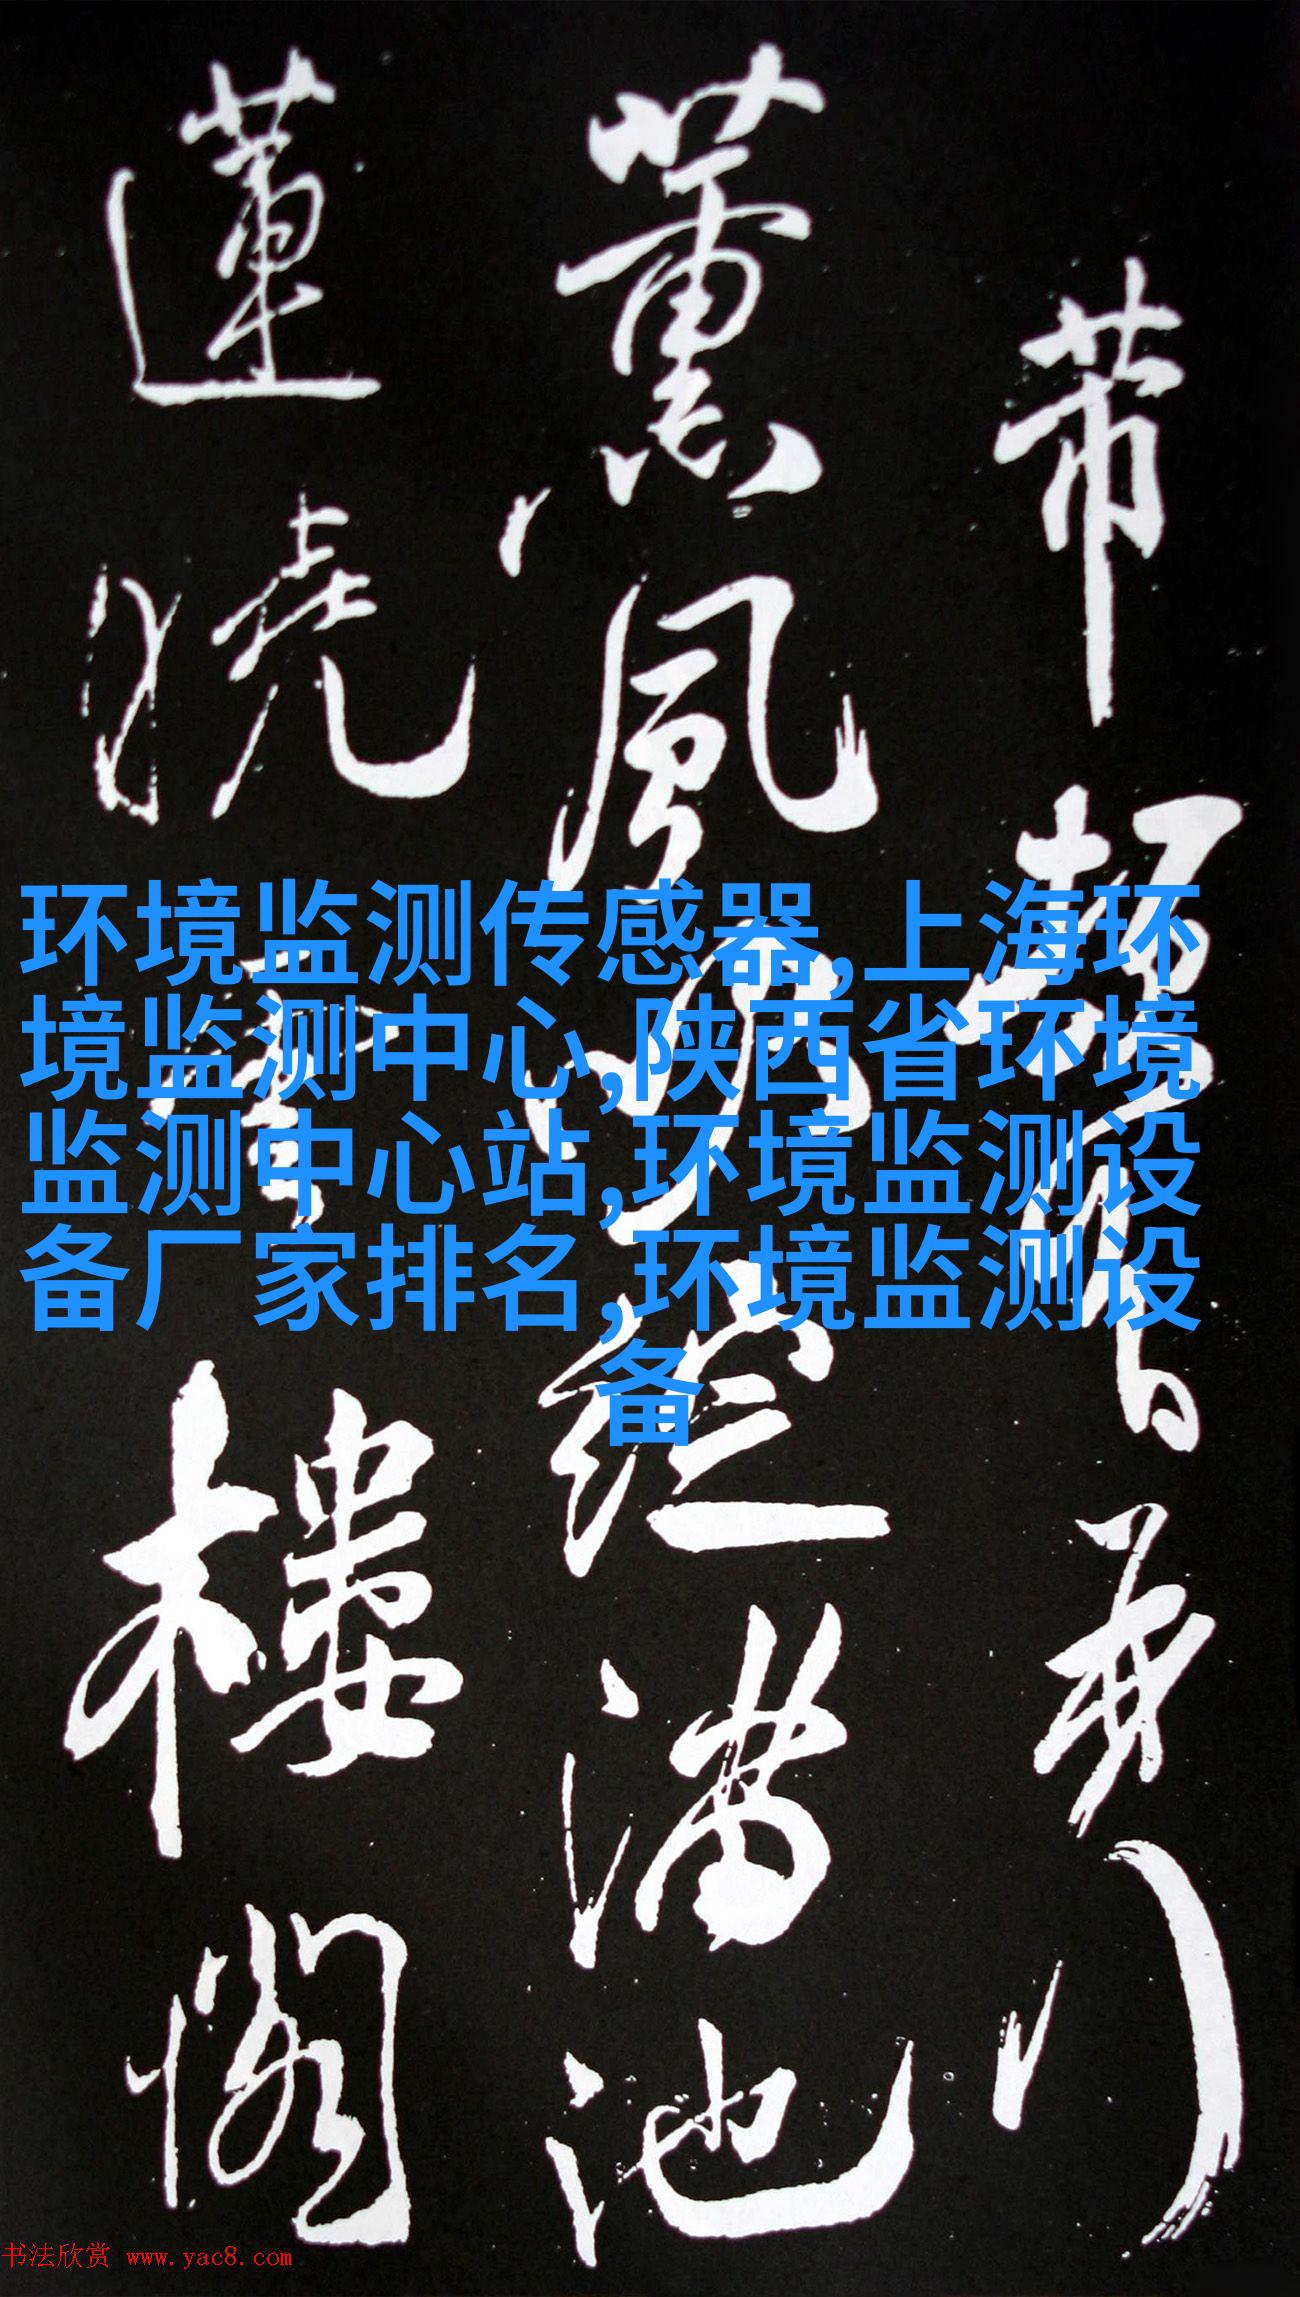 带
薰風吹綻滿池
蓮繞雲樓閣
环境监测传感器,上海环
境监测中心,陕西省环境
监测中心站,环境监测设
备厂家排名,环境监测设
备
书法欣赏 www.yac8.com